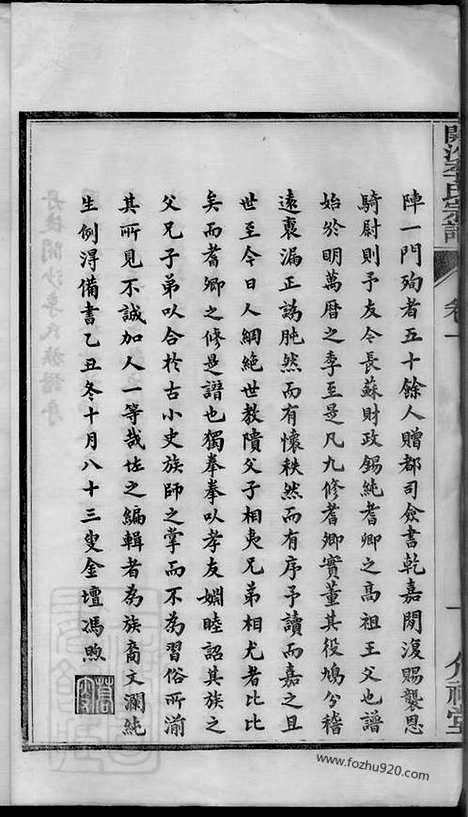 開沙李氏宗譜
卷一
一
陣一門殉者五十餘人贈都司僉書乾嘉間復賜襲恩
騎尉則予友今長蘇財政錫純耆卿之高祖王父也譜
始於明萬曆之季至是凡九修耆卿實董其役鳩分稽
遠裒漏正譌肫然而有懷秩然而有序予讀而嘉之且
世至今日人綱絕世教隤父子相夷兄弟相尤者比比
矣而耆卿之修是譜也獨拳拳以孝友婣睦詔其族之
父兄子弟以合於古小史族師之掌而不為習俗所湔
其所見不誠加人一等哉任之編輯者為族裔文瀾純
生例得備書乙丑冬十月八十三叟金壇馮煦
蒿叟
www.fozhu920.com